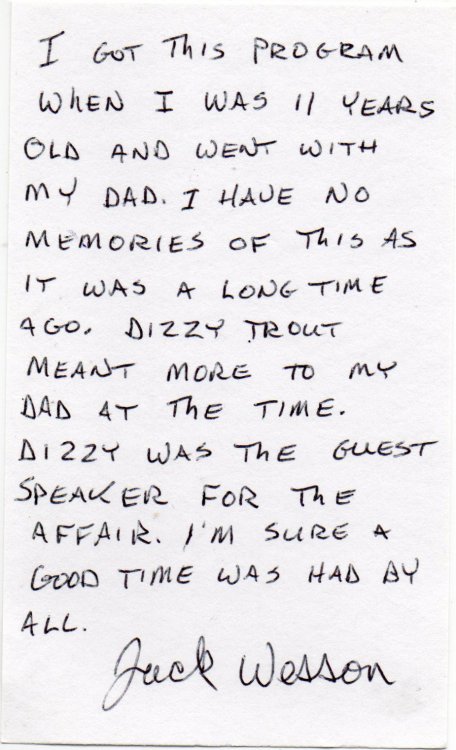 I GOT THIS PROGRAM
WHEN I WAS 11 YEARS
OLD AND WENT WITH
MY DAD. I HAVE NO
MEMORIES OF THIS AS
IT WAS A LONG TIME
AGO. DIZZY TROUT
MEANT MORE TO MY
DAD AT THE TIME.
DIZZY WAS THE GUEST
SPEAKER FOR THE
AFFAIR. I'M SURE A
GOOD TIME WAS HAD BY
ALL.
Jack Wesson